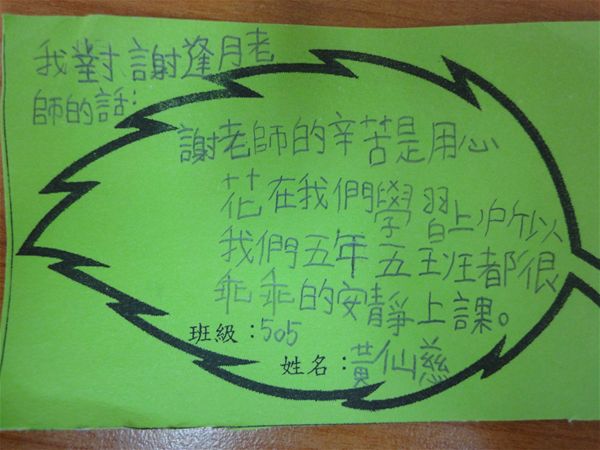 我對謝逢月老
師的話：
謝老師的辛苦是用心
花在我們學習上,所以
我們五年五班都很
乖乖的安靜上課。
班級：505
姓名：黃仙慈